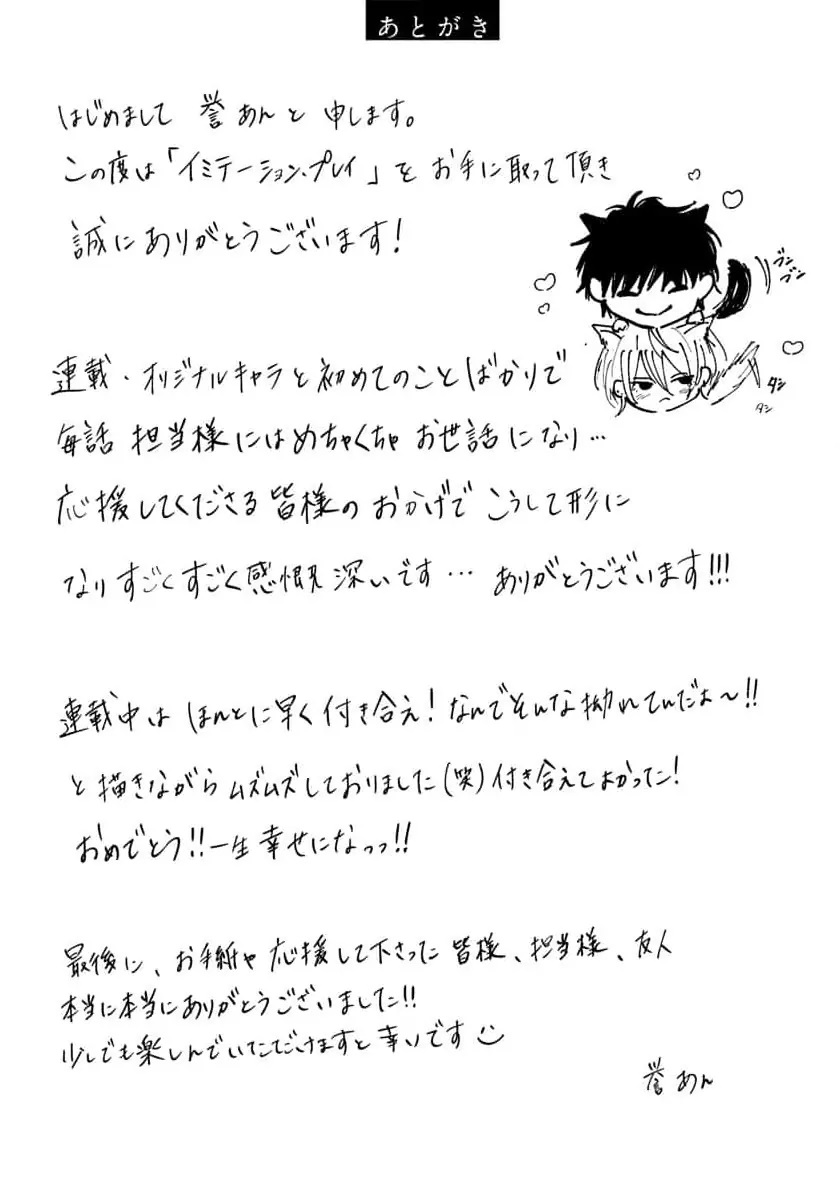 あとがき
はじめまして 誉あんと申します。
この度は「イミテーション・プレイ」をお手に取って頂き
誠にありがとうございます!
ブンブン
連載・オリジナルキャラと初めてのことばかりで
タシ
タシ
毎話 担当様にはめちゃくちゃお世話になり…
応援してくださる皆様のおかげでこうして形に
なりすごくすごく感慨深いです… ありがとうございます!!!
連載中は ほんとに早く付き合え!なんでそんな拗れてんだよ〜!!
と描きながらムズムズしておりました(笑)付き合えてよかったニ!
おめでとう!!一生幸せになっっ!!
最後に、お手紙や応援して下さった皆様、担当様、友人
本当に本当にありがとうございました!!
少しでも楽しんでいただけますと幸いです
誉あん